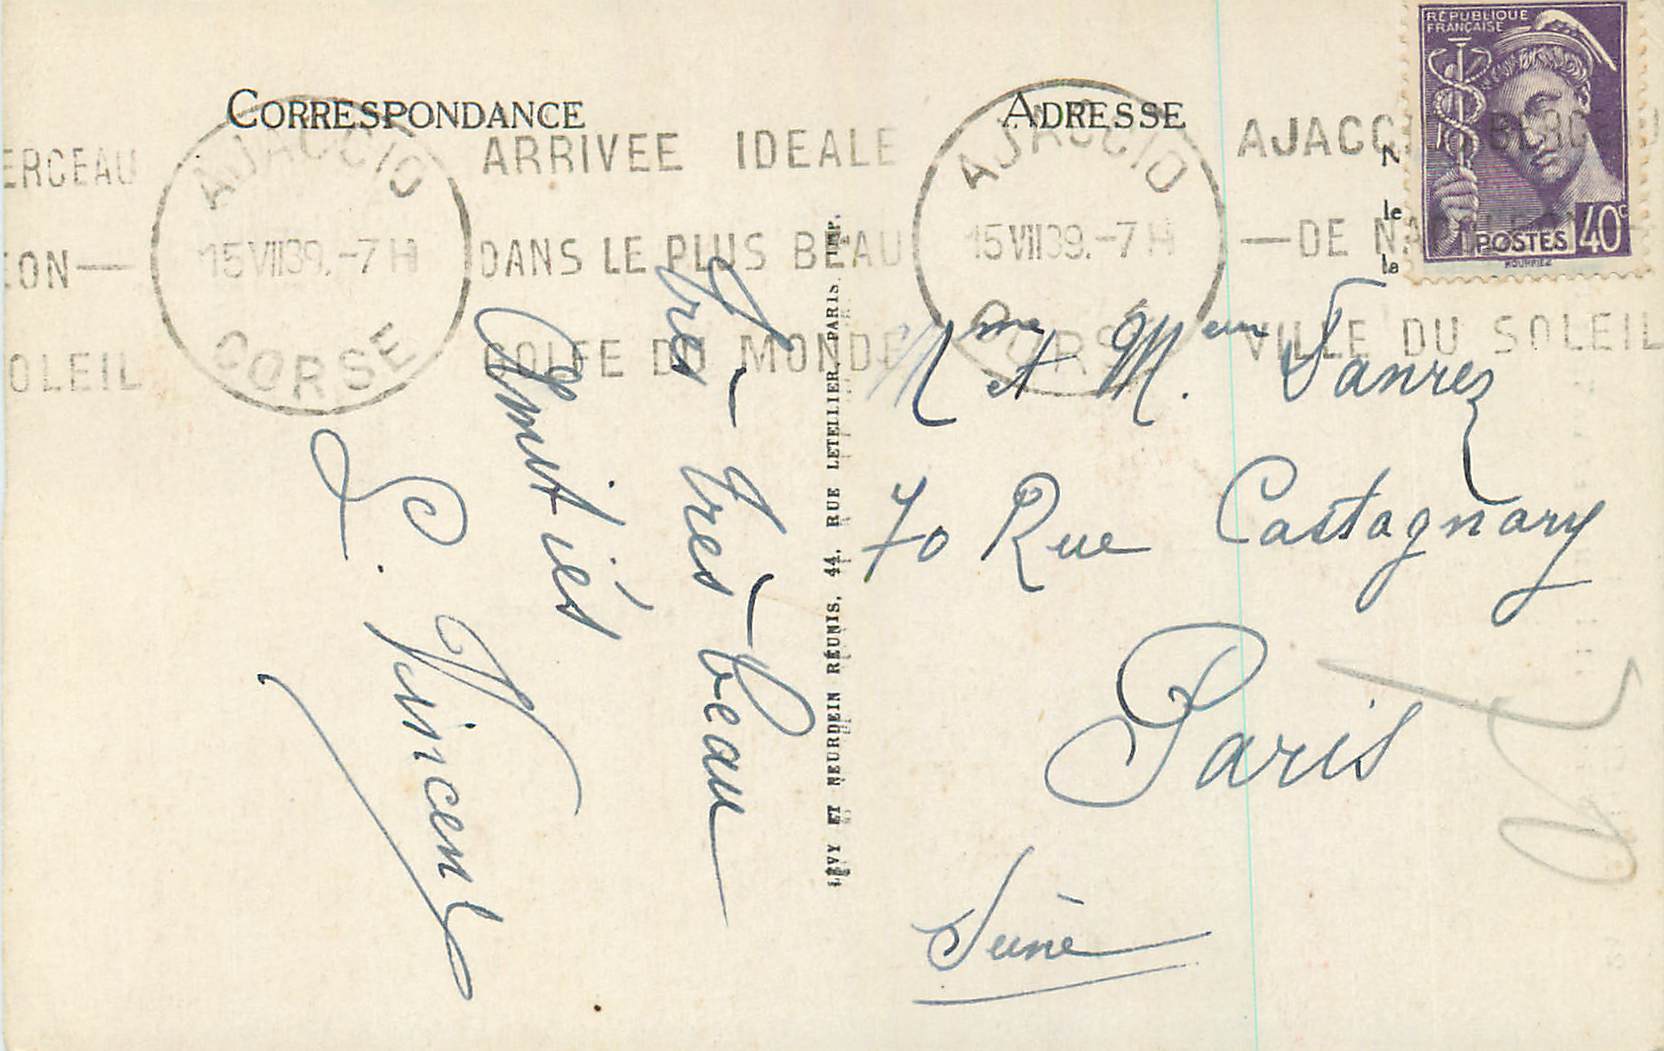 CORRESPONDANCE
ADRESSE
RÉPUBLIQUE
FRANÇAISE
POSTES 40c
AJACCIO
15 VII 39.-7 H
CORSE
ERCEAU
ON—
OLEIL
ARRIVEE IDEALE
DANS LE PLUS BEAU
GOLFE DU MONDE
AJACCIO
15 VII 39.-7 H
CORSE
AJACCIO BERCEAU
—DE NAPOLEON—
VILLE DU SOLEIL
Très-très-beau
Amitiés
L. Vincent
LÉVY ET NEURDEIN RÉUNIS, 44, RUE LETELLIER, PARIS, IMP.
Mme et M.
70 Rue Castagnary
Paris
Seine